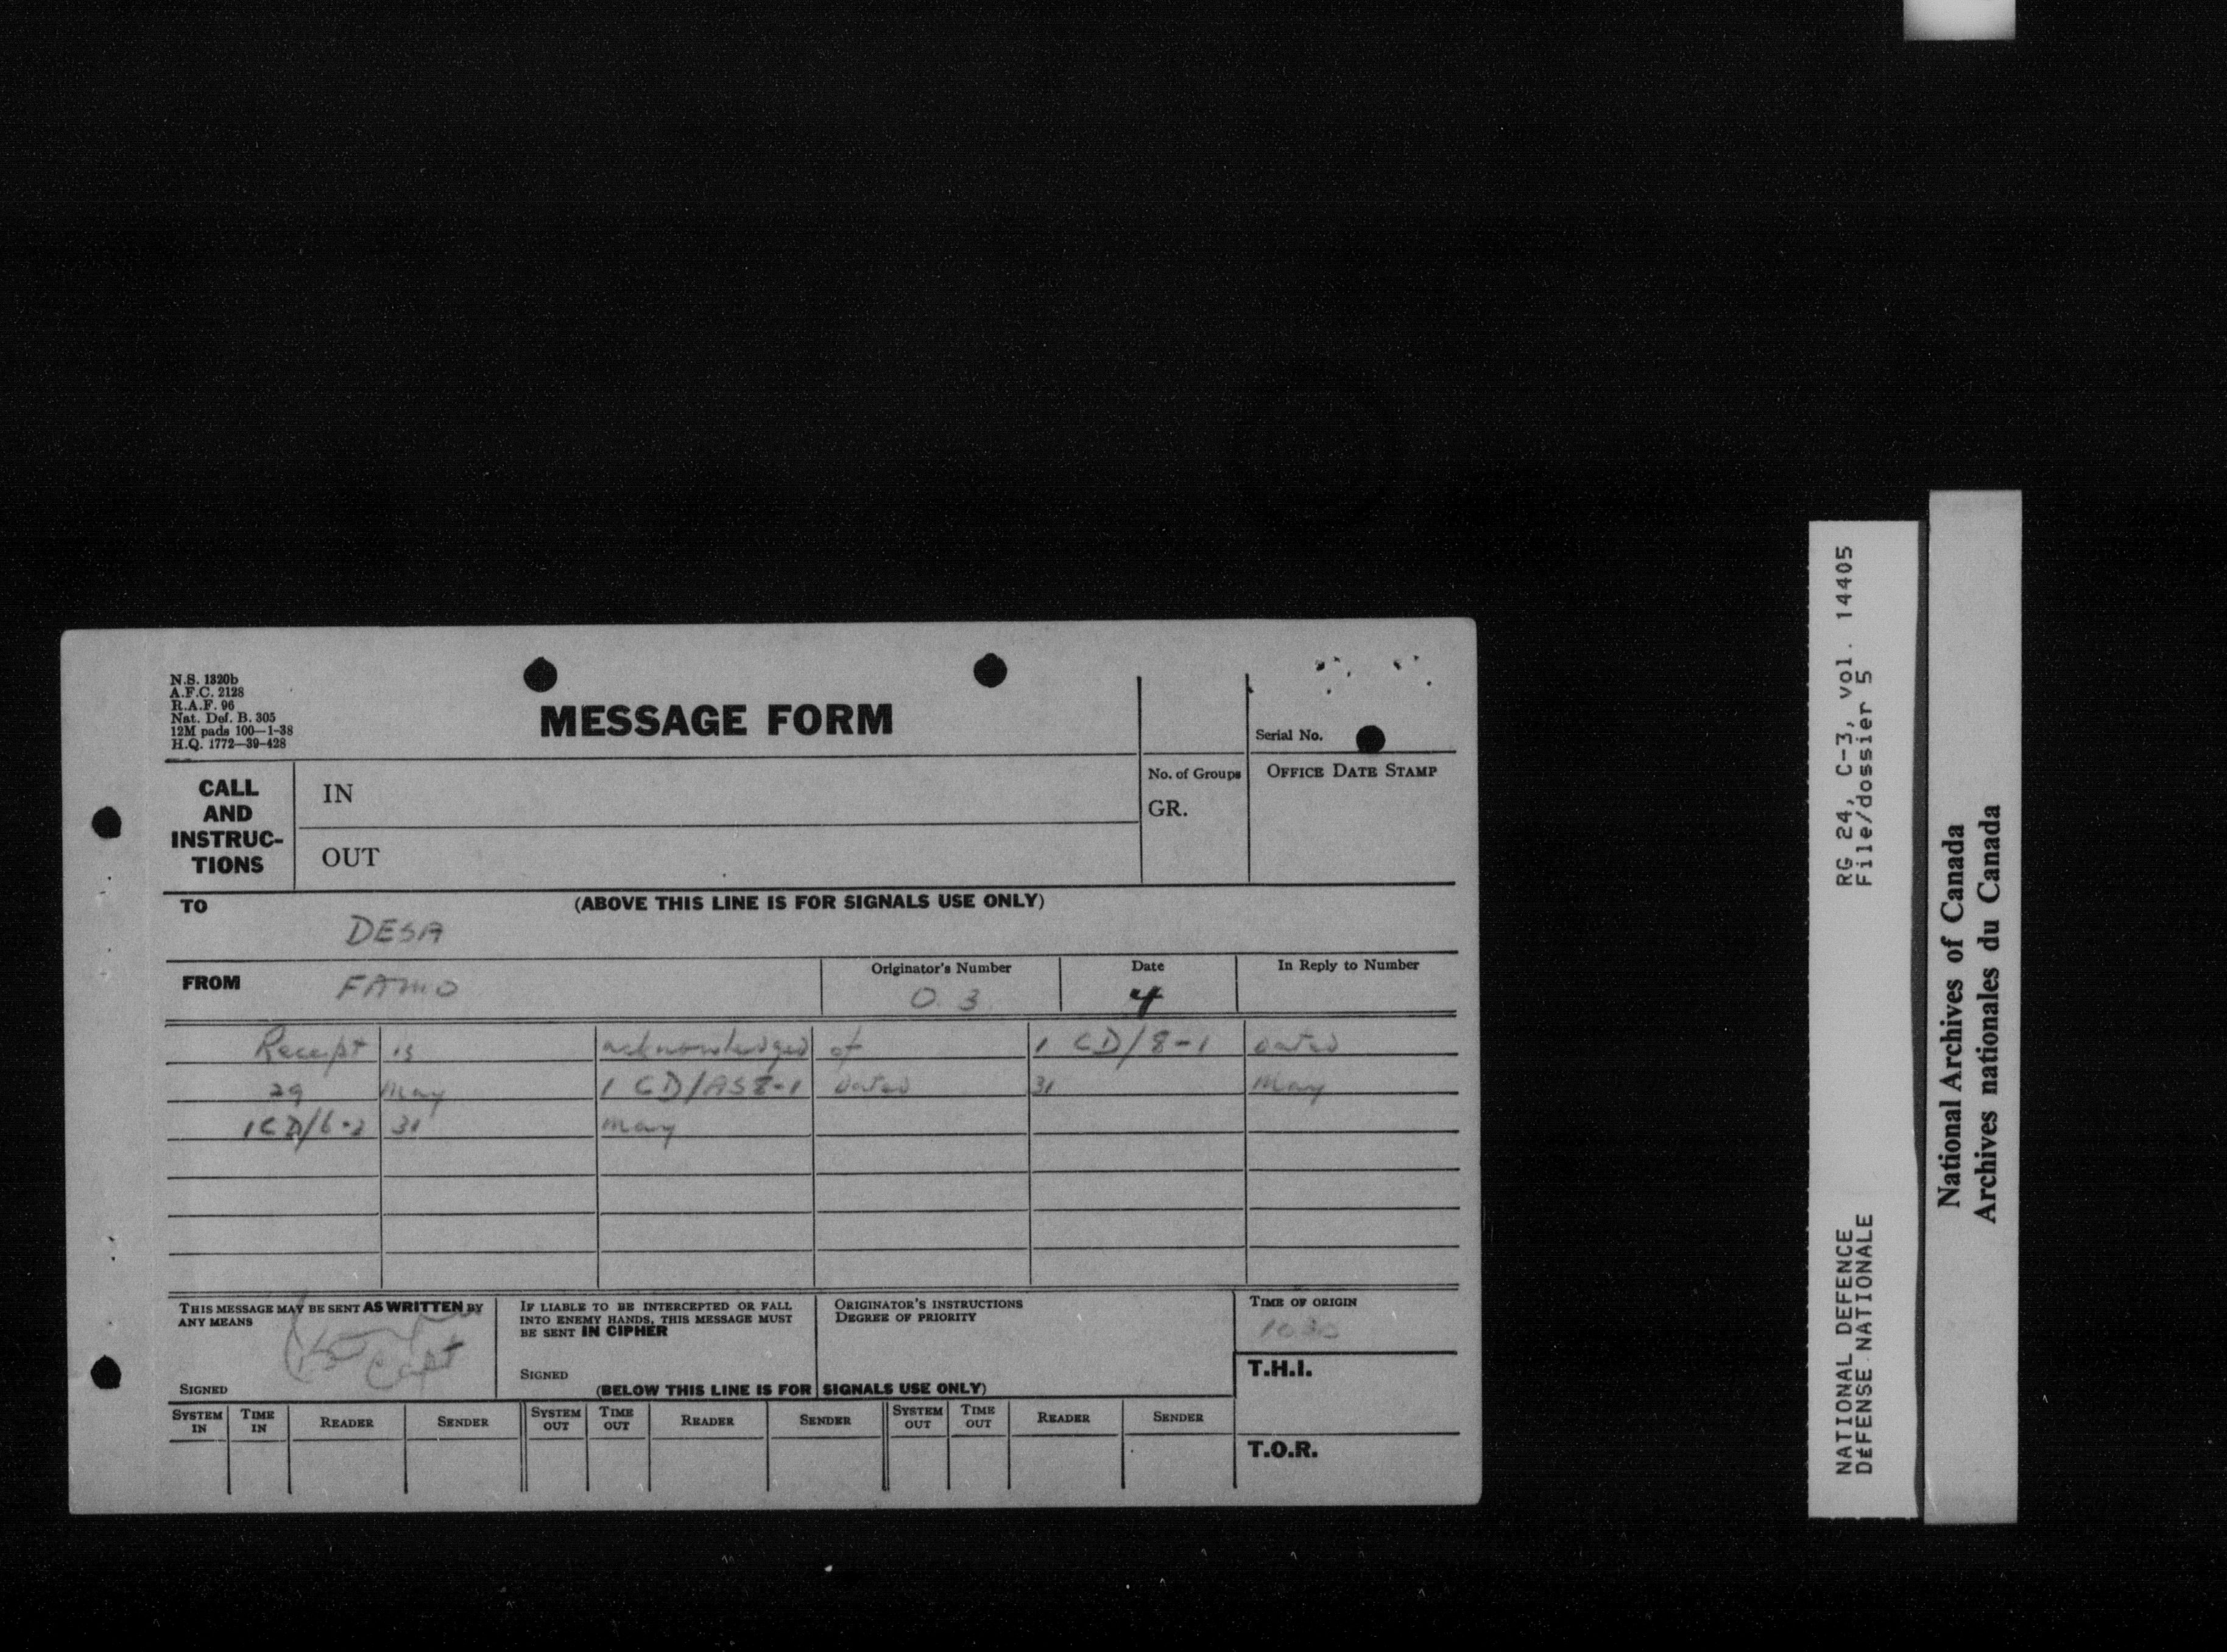 N.S. 1320b
A.F.C. 2128
R.A.F. 96
Nat. Def. B. 305
12M pads 100—1-38
H.Q. 1772—39-428
MESSAGE FORM
Serial No.
CALL AND INSTRUC-TIONS
IN
OUT
No. of Groups
GR.
OFFICE DATE STAMP
(ABOVE THIS LINE IS FOR SIGNALS USE ONLY)
TO DESA
FROM FAMO
Originator's Number O 3
Date 4
In Reply to Number
Receipt is acknowledged of 1 CD/8-1 Dated
29 May 1 CD/AS8-1 Dated 31 May
1CD/6-2 31 May
THIS MESSAGE MAY BE SENT AS WRITTEN BY
ANY MEANS
Capt
SIGNED
IF LIABLE TO BE INTERCEPTED OR FALL
INTO ENEMY HANDS, THIS MESSAGE MUST
BE SENT IN CIPHER
SIGNED
ORIGINATOR'S INSTRUCTIONS
DEGREE OF PRIORITY
TIME OF ORIGIN
1030
T.H.I.
(BELOW THIS LINE IS FOR SIGNALS USE ONLY)
SYSTEM IN TIME IN READER SENDER SYSTEM OUT TIME OUT READER SENDER SYSTEM OUT TIME OUT READER SENDER
T.O.R.
RG 24, C-3, vol. 14405
File/dossier 5
NATIONAL DEFENCE
DÉFENSE NATIONALE
National Archives of Canada
Archives nationales du Canada